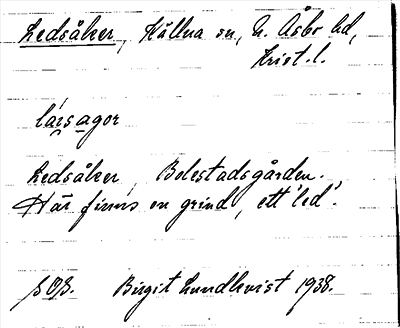 Ledsåker, Källna sn, N. Åsbo hd,
Krist. l.
Ledsåker, Bolestadsgården.
Här finns en grind, ett 'led'.
Birgit Lundkvist 1938.